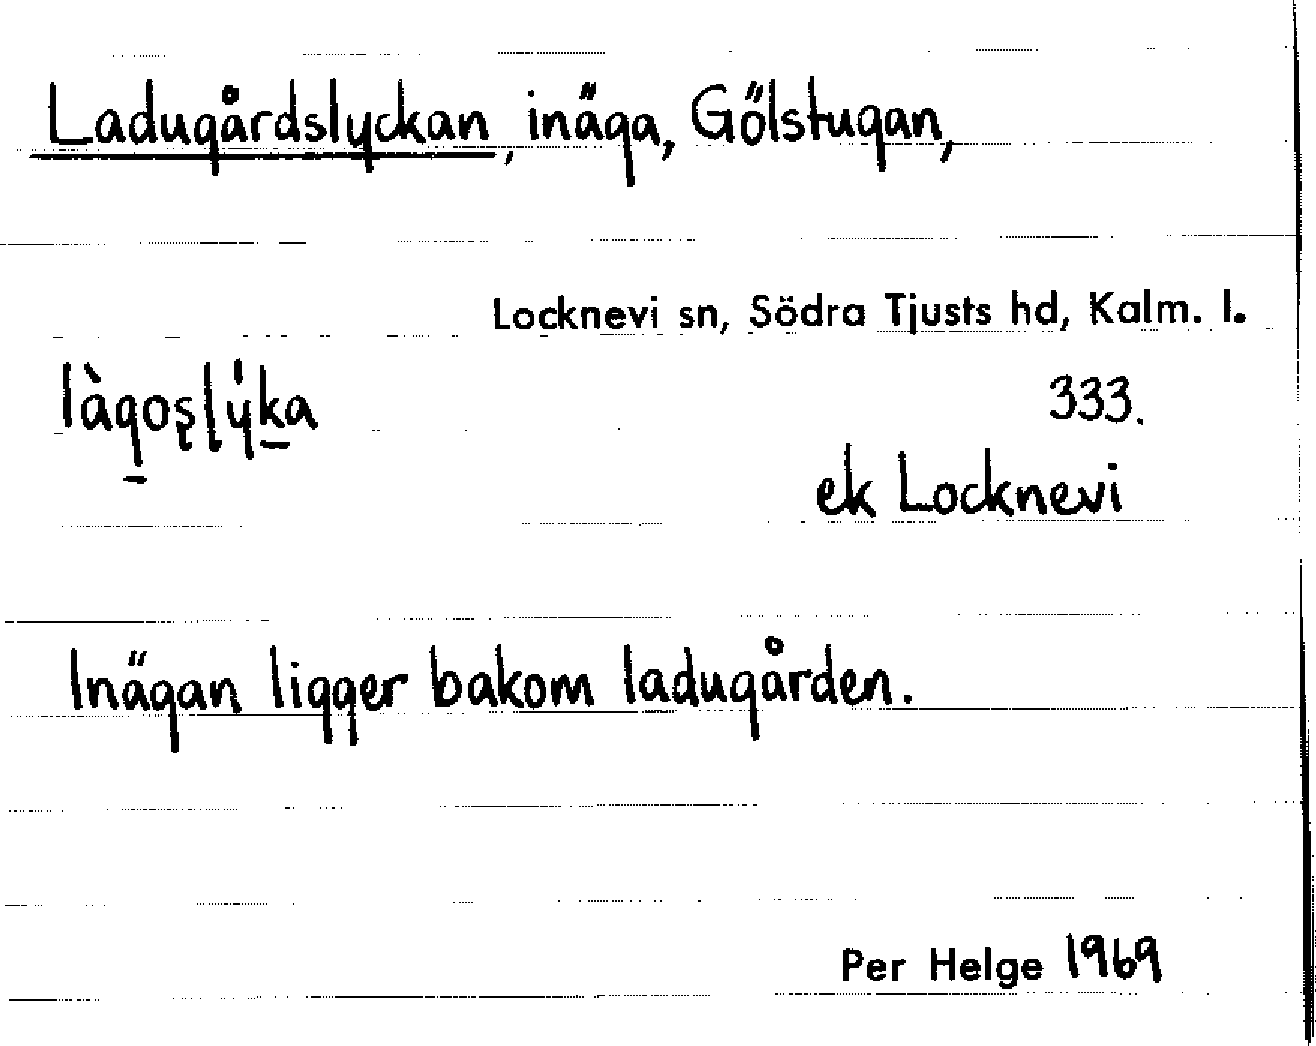 Ladugårdslyckan, inäga, Gölstugan,
Locknevi sn, Södra Tjusts hd, Kalm. l.
làgos̨lẏ́ka
333.
ek Locknevi
Inägan ligger bakom ladugården.
Per Helge 1969